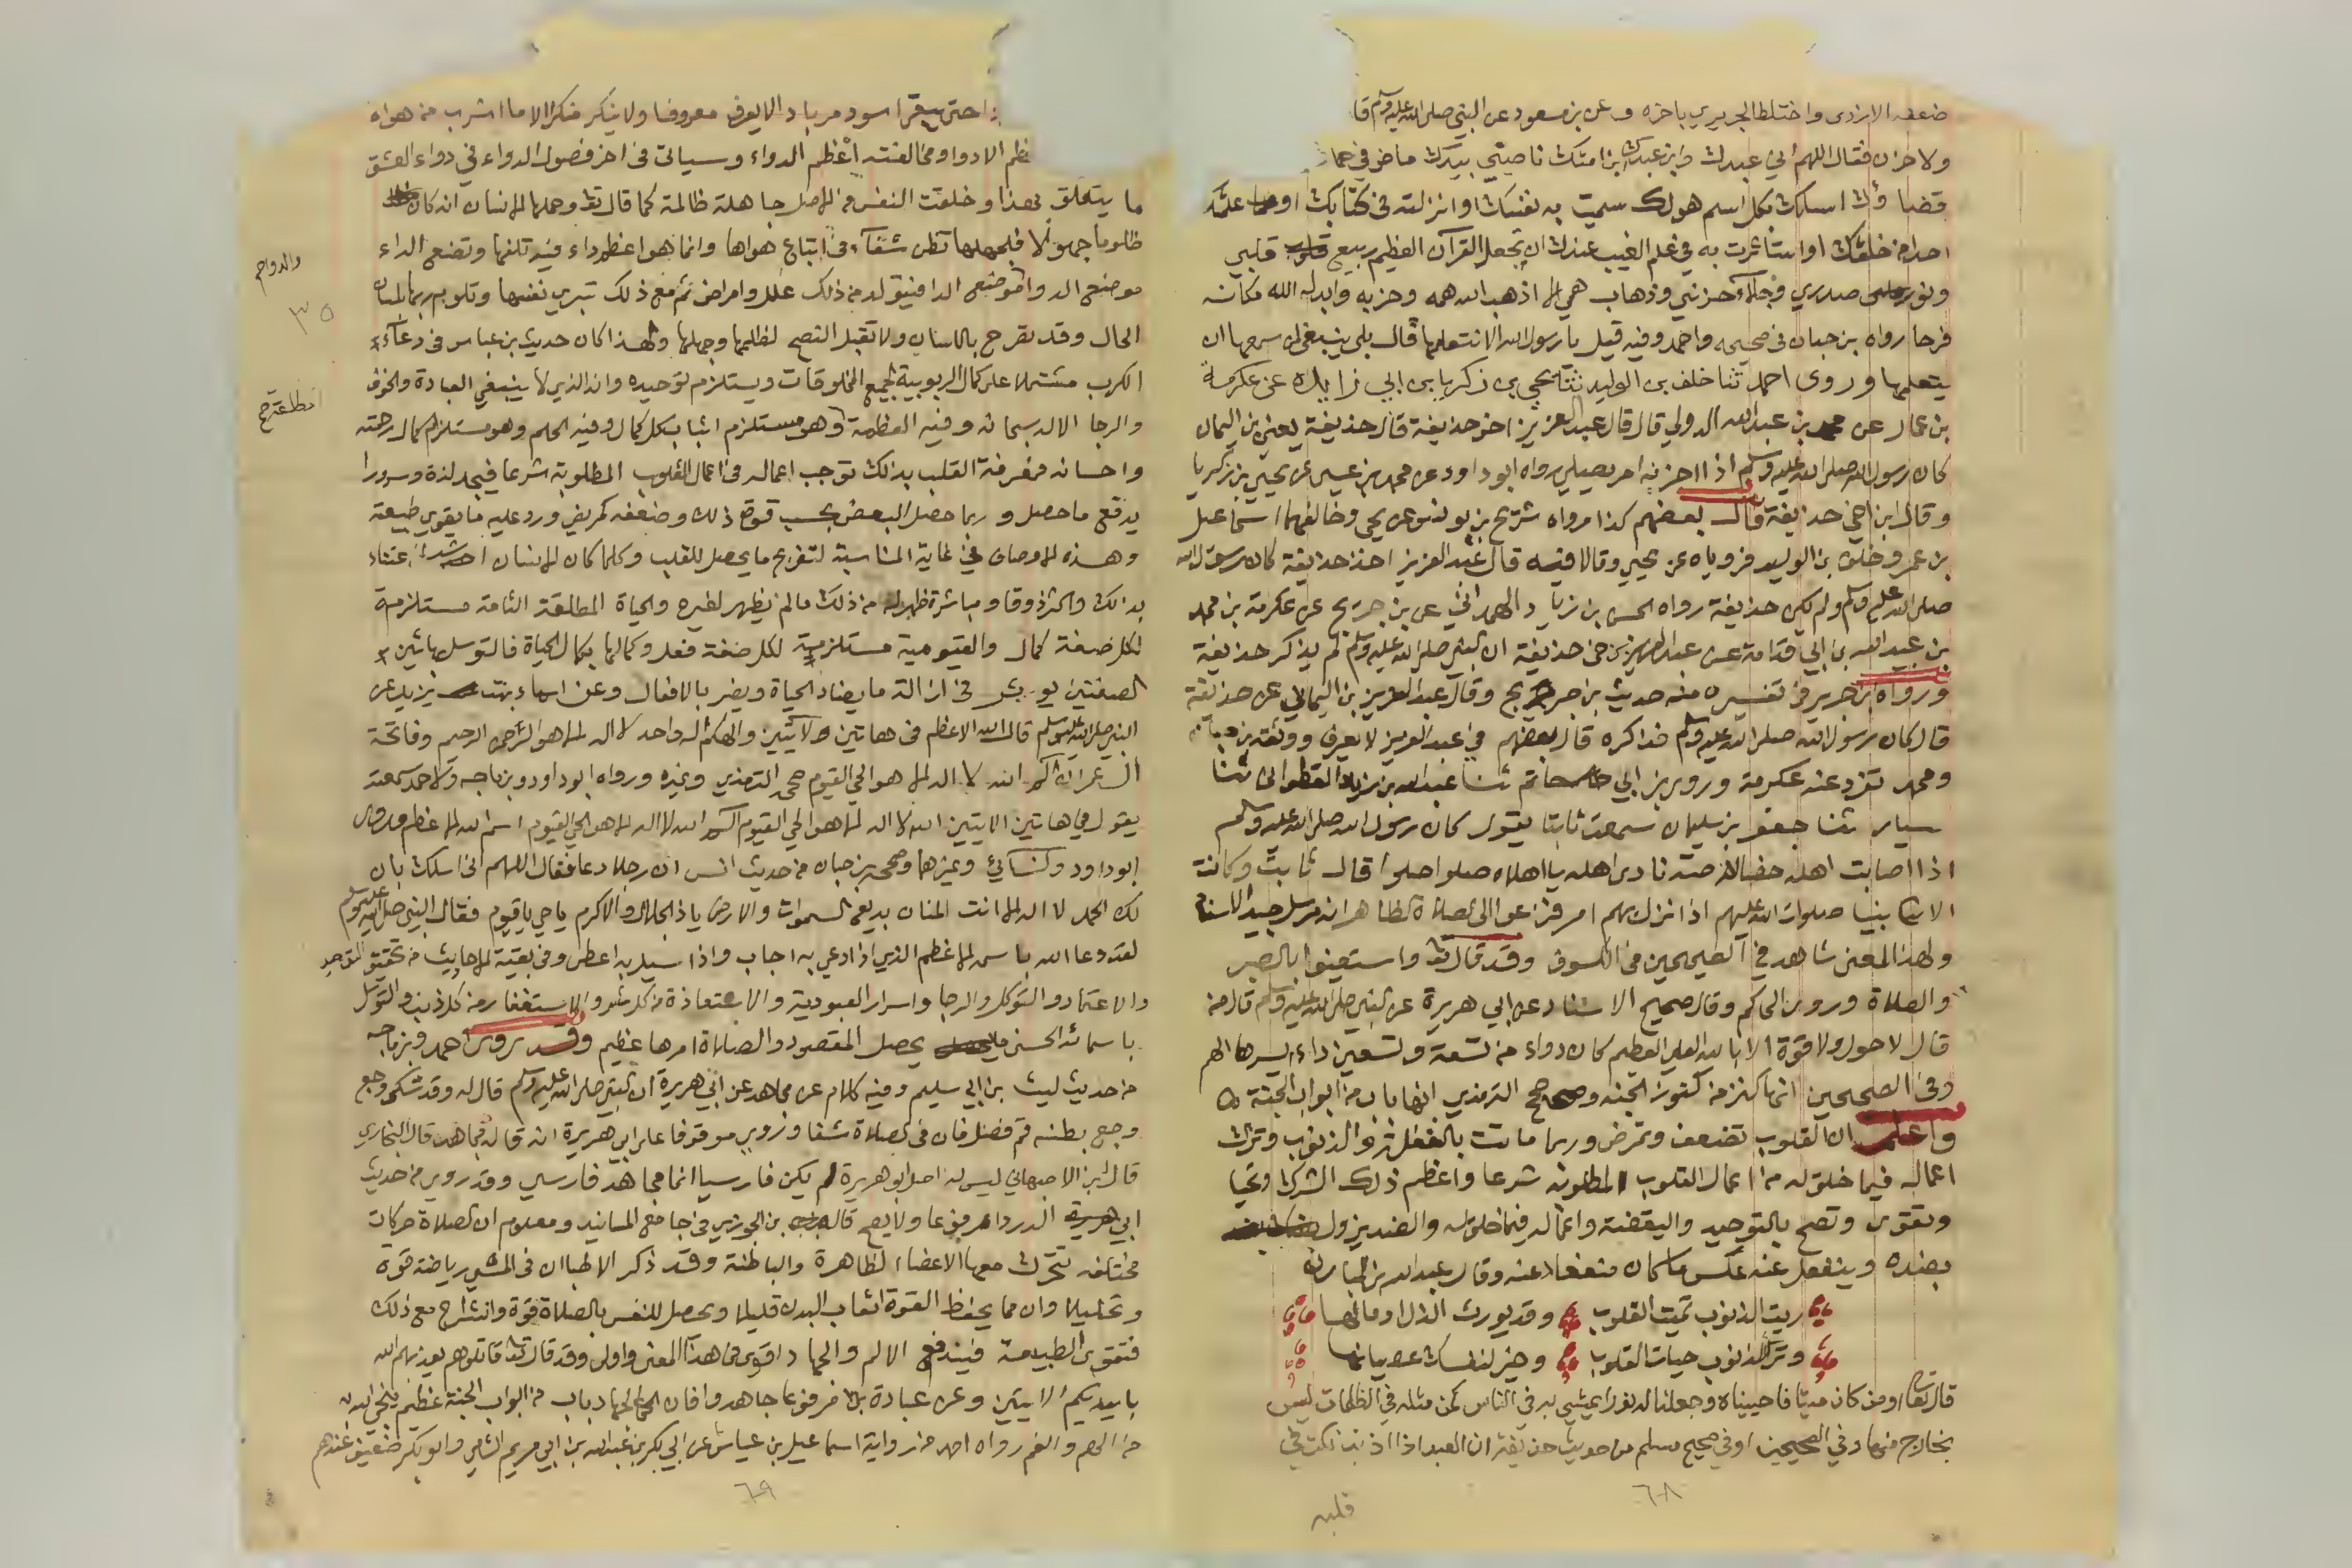 ضعفه الازدى واختلط الجريري باخره وعن بن مسعود عن النبي صلى الله عليه وسلم قا
ولا حزن فقال اللهم اني عبدك وابن عبدك بن امتك ناصيتي بيدك ماض في حكمك
قضاؤك اسلك بكل اسم هو لك سميت به نفسك او انزلته في كتابك او علمته
احدا من خلقك او استأثرت به في علم الغيب عندك ان تجعل القرآن العظيم ربيع قلبي
ونور صدري وجلاء حزني وذهاب همي الا اذهب الله همه وحزنه وابدله الله مكانه
فرحا رواه بن حبان في صحيحه واحمد وفيه قيل يا رسول الله الا نتعلمها قال بلى ينبغي لمن سمعها ان
يتعلمها وروى احمد ثنا خلف بن الوليد ثنا يحيي بن زكريا بن ابي زايدة عن عكرمة
بن عمار عن محمد بن عبد الله الدولي قال قال عبد العزيز اخو حذيفة قال حذيفة يعني بن اليمان
كان رسول الله صلى الله عليه وسلم اذا احزنه امر يصلي رواه ابو داود عن محمد بن عيسى عن يحيى بن زكريا
وقال ابن اخي حذيفة قال بعضهم كذا رواه شريح بن يونس عن يحي وخالفهما اسماعيل
بن عمر وخلف بن الوليد فروياه عن يحيى وقالا فيه قال عبد العزيز اخو حذيفة كان رسول الله
صلى الله عليه وسلم ولم يكن حذيفة رواه الحسن بن زياد الهمداني عن بن جريج عن عكرمة بن محمد
بن عبيد الله بن ابي قدامة عن عبد العزيز بن اخي حذيفة ان النبي صلى الله عليه وسلم لم يذكر حذيفة
ورواه بن جرير في تفسيره من حديث بن جريج وقال عبد العزيز بن اليماني عن حذيفة
قال كان رسول الله صلى الله عليه وسلم فذاكره قال بعضهم في عبد العزيز لا يعرف ووثقه بن حبان
ومحمد تفرد عنه عكرمة وروى بن ابي حاتم ثنا عبد الله بن زياد القطواني ثنا
سيار ثنا جعفر بن سليمان سمعت ثابتا يقول كان رسول الله صلى الله عليه وسلم
اذا اصابت اهله خصاصة نادى اهله يا اهلاه صلوا صلوا قال ثابت وكانت
الانبيا صلوات الله عليهم اذا نزل بهم امر فزعوا الى الصلاة الظاهر انه مرسل جيد الاسناد
ولهذا المعنى شاهد في الصحيحين في الكسوف وقد قال تعالى واستعينوا بالصبر
والصلاة وروى الحاكم وقال صحيح الاسناد عن ابي هريرة عن النبي صلى الله عليه وسلم قال من
قال لا حول ولا قوة الا بالله العلي العظيم كان دواء من تسعة وتسعين داء ايسرها الهم
وفي الصحيحين انها كنز من كنوز الجنه وصحح الترمذي انها باب من ابواب الجنة
واعلم ان القلوب تضعف وتمرض وربما ماتت بالغفلة والذنوب وترك
اعماله فيما خلق له من اعمال القلوب المطلوبة شرعا واعظم ذلك الشرك وتحيا
وتقوى وتصح بالتوحيد واليقضة واعماله فيما خلق له والضد يزول
بضده وينفعل عنه عكس ما كان منفعلا عنه وقال عبد الله بن المبارك
رايت الذنوب تميت القلوب وقد يورث الذل ادمانها
وترك الذنوب حيات القلوب وخير لنفسك عصيانها
قال تعالى اومن كان ميتا فاحييناه وجعلنا له نورا يمشي به في الناس كمن مثله في الظلمات ليس
بخارج منها وفي الصحيحين او في صحيح مسلم من حديث حذيفة ان العبد اذا اذنب نكت في
قلبه
٦٨
حتى يبقى اسود مرباد الا يعرف معروفا ولا ينكر منكرا الا ما اشرب من هواه
الادوا ومخالفته اعظم الدواء وسياتى في اخر فصول الدواء في دواء العشق
ما يتعلق بهذا وخلقت النفس في الاصل جاهلة ظالمة كما قال تعالى وحملها الانسان انه كان
ظلوما جهولا فلجهلها تظن شفآء في اتباع هواها وانما هو اعظم داء فيه تلفها وتضع الداء
موضع الدواء وموضع الدا فيتولد من ذلك علل وامراض ثم مع ذلك تبرى نفسها وتلوم ربها بلسان
الحال وقد تصرح باللسان ولا تقبل النصح لظلمها وجهلها ولهذا كان حديث بن عباس في دعاء
الكرب مشتملا على كمال الربوبية لجميع المخلوقات ويستلزم توحيده وانه الذي لا ينبغي العبادة والخوف
والرجا الا له سبحانه وفيه العظمة وهو مستلزم اثبات كل كمال وفيه الحلم وهو مستلزم كمال رحمته
واحسانه فمعرفة القلب بذلك توجب اعماله في اعمال القلوب المطلوبة شرعا فيجد لذة وسرورا
يدفع ما حصل وربما حصل البعض بحسب قوة ذلك وضعفه كمريض ورد عليه ما يقوي طبيعته
وهذه الاوصاف في غاية المناسبة لتفريج ما يحصل للقلب وكلما كان الانسان اشد اعتناء
بذلك واكثر ذوقا ومباشرة ظهر له من ذلك ما لم يظهر لغيره والحياة المطلقة التامة مستلزمة
لكل صفة كمال والقيومية مستلزمة لكل صفة فعل وكمالها بكمال الحياة فالتوسل بهاتين
الصفتين يوثر في ازالة ما يضاد الحياة ويضر بالافعال وعن اسماء بنت يزيد عن
النبي صلى الله عليه وسلم قال اسم الله الاعظم في هاتين الايتين والهكم اله واحد لا اله الا هو الرحمن الرحيم وفاتحة
ال عمران الم الله لا اله الا هو الحي القيوم صححه الترمذي وغيره ورواه ابو داود وبن ماجه ولاحمد سمعته
يقول في هاتين الايتين الله لا اله الا هو الحي القيوم الم الله لا اله الا هو الحي القيوم اسم الله الاعظم وروى
ابو داود والنسائي وغيرهما وصححه بن حبان من حديث انس ان رجلا دعا فقال اللهم انى اسلك بان
لك الحمد لا اله الا انت المنان بديع السموات والارض يا ذا الجلال والاكرم يا حي يا قيوم فقال النبي صلى الله عليه وسلم
لقد دعا الله باسمه الاعظم الذي اذا دعي به اجاب واذا سيل به اعطى وفي بقية الاحاديث من تحقيق التوحيد
والاعتماد والتوكل والرجا واسرار العبودية والاستعاذة من كل شر والاستغفار من كل ذنب والتوسل
باسمائه الحسنى يحصل المقصود والصلاة امرها عظيم وقد روى احمد وبن ماجه
من حديث ليث بن ابي سليم وفيه كلام عن مجاهد عن ابي هريرة ان النبي صلى الله عليه وسلم قال له وقد شكى وجع
وجع بطنه قم فصل فان في الصلاة شفا وروي موقوفا على ابي هريرة انه قاله لمجاهد قال البخاري
قال ابن الاصبهاني ليس له اصل ابو هريرة لم يكن فارسيا انما مجاهد فارسي وقد روي من حديث
ابي الدرداء مرفوعا ولا يصح قاله بن الجوزي في جامع المسانيد ومعلوم ان الصلاة حركات
مختلفه تتحرك معها الاعضاء الظاهرة والباطنة وقد ذكر الاطباء ان في المشي رياضة قوة
وتحليلا وان مما يحفظ القوة اتعاب البدن قليلا ويحصل للنفس بالصلاة قوة وانشراح مع ذلك
فتقوى الطبيعة فيندفع الالم والجهاد اقوى في هذا المعنى واولى وقد قال تعالى قاتلوهم يعذبهم الله
بايديكم الايتين وعن عبادة مرفوعا جاهدوا فان الجهاد باب من ابواب الجنة عظيم ينجي الله به
من الهم والغم رواه احمد من رواية اسماعيل بن عياش عن ابي بكر بن عبد الله بن ابي مريم الشامي وابو بكر ضعيف عندهم
٦٩
والدواء
٣٥